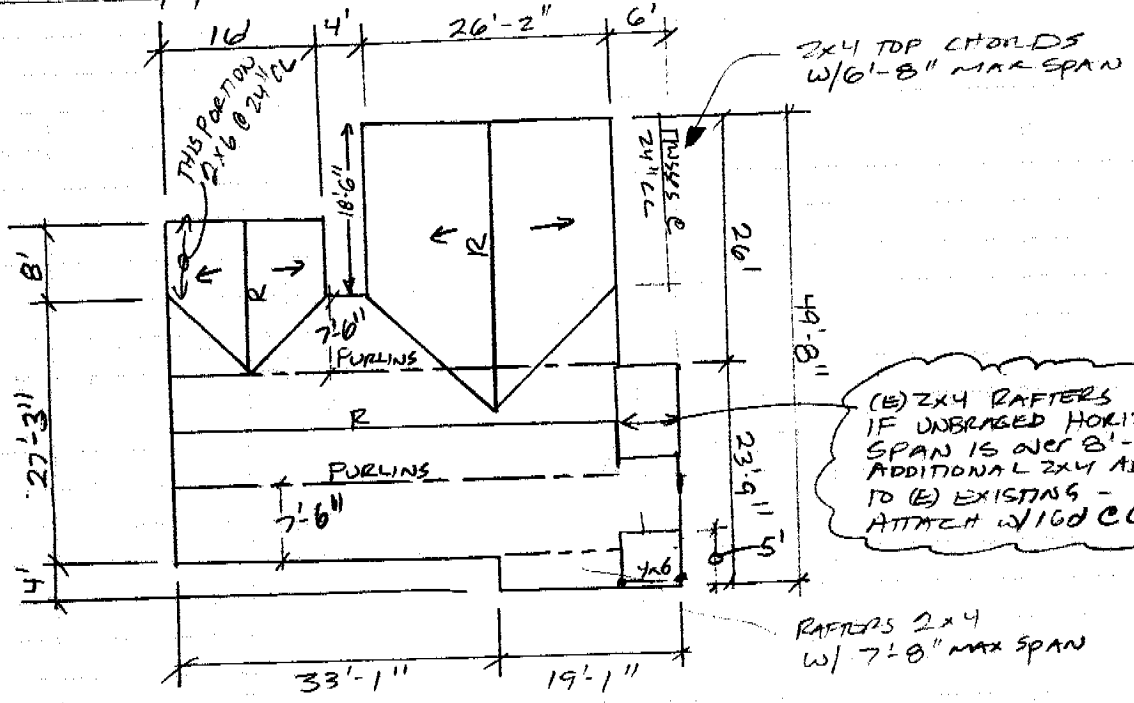 16d
4'
26'-2"
6'
2x4 TOP CHORDS
W/6'-8" MAX SPAN
THIS PORTION
2x6 @ 24" CL
18'-6"
TRUSSES @
24" CC
8'
R
R
26'
49'-8"
7'-6"
PURLINS
27'-3"
R
(E) 2x4 RAFTERS
IF UNBRACED HORI
SPAN IS OVER 8'-
ADDITIONAL 2x4
TO (E) EXISTING -
ATTACH W/16d
23'-9"
PURLINS
7'-6"
5'
4x6
4'
RAFTERS 2x4
W/ 7'-8" MAX SPAN
33'-1"
19'-1"